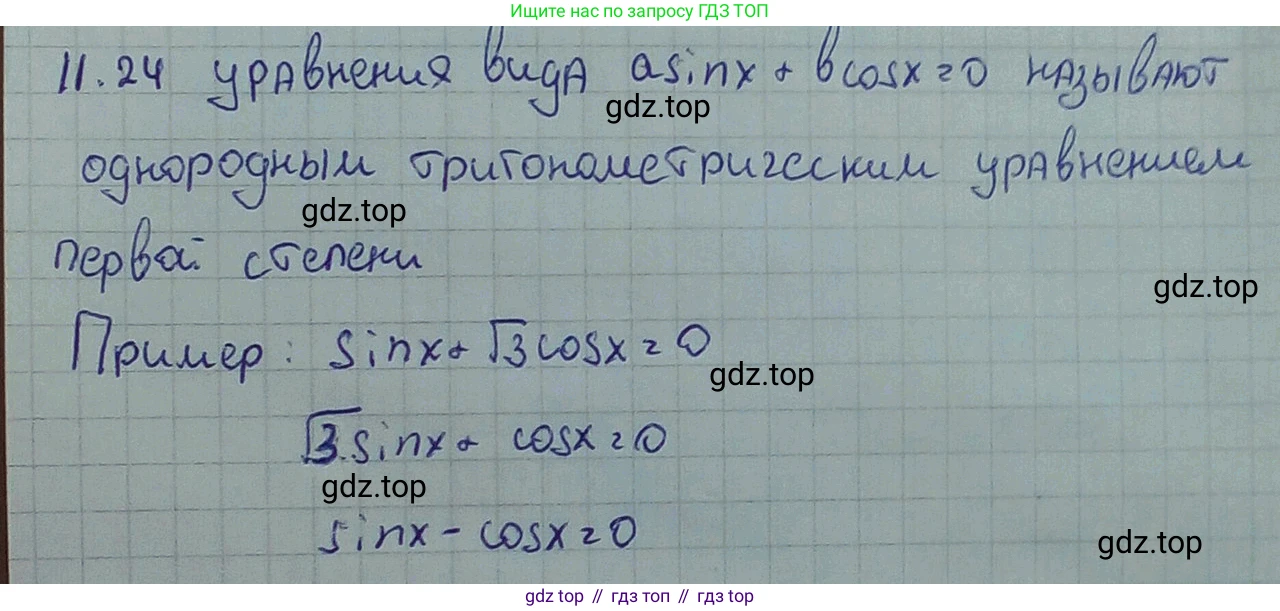 Ищите нас по запросу ГДЗ ТОП
11.24 уравнения вида asinx + bcosx = 0 называют
gdz.top
однородным тригонометрическим уравнением
gdz.top
первой степени
gdz.top
Пример: sinx + √3cosx = 0
gdz.top
√3sinx + cosx = 0
gdz.top
sinx - cosx = 0
gdz.top
gdz top // гдз топ // гдз top